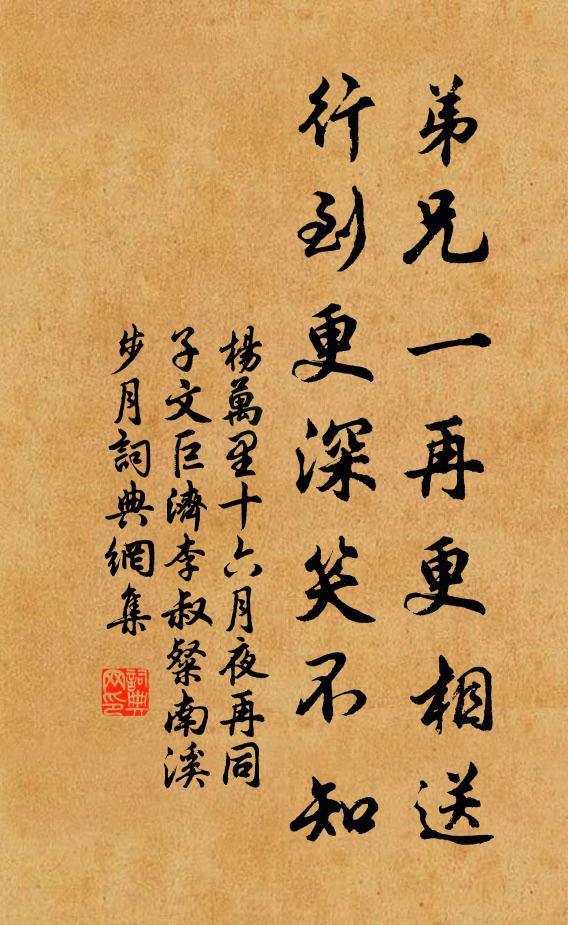 弟兄一再更相送
行到更深笑不知
楊萬里十六月夜再同
子文巨濟李叔粲南溪
步月詞典網集
詞典
网印